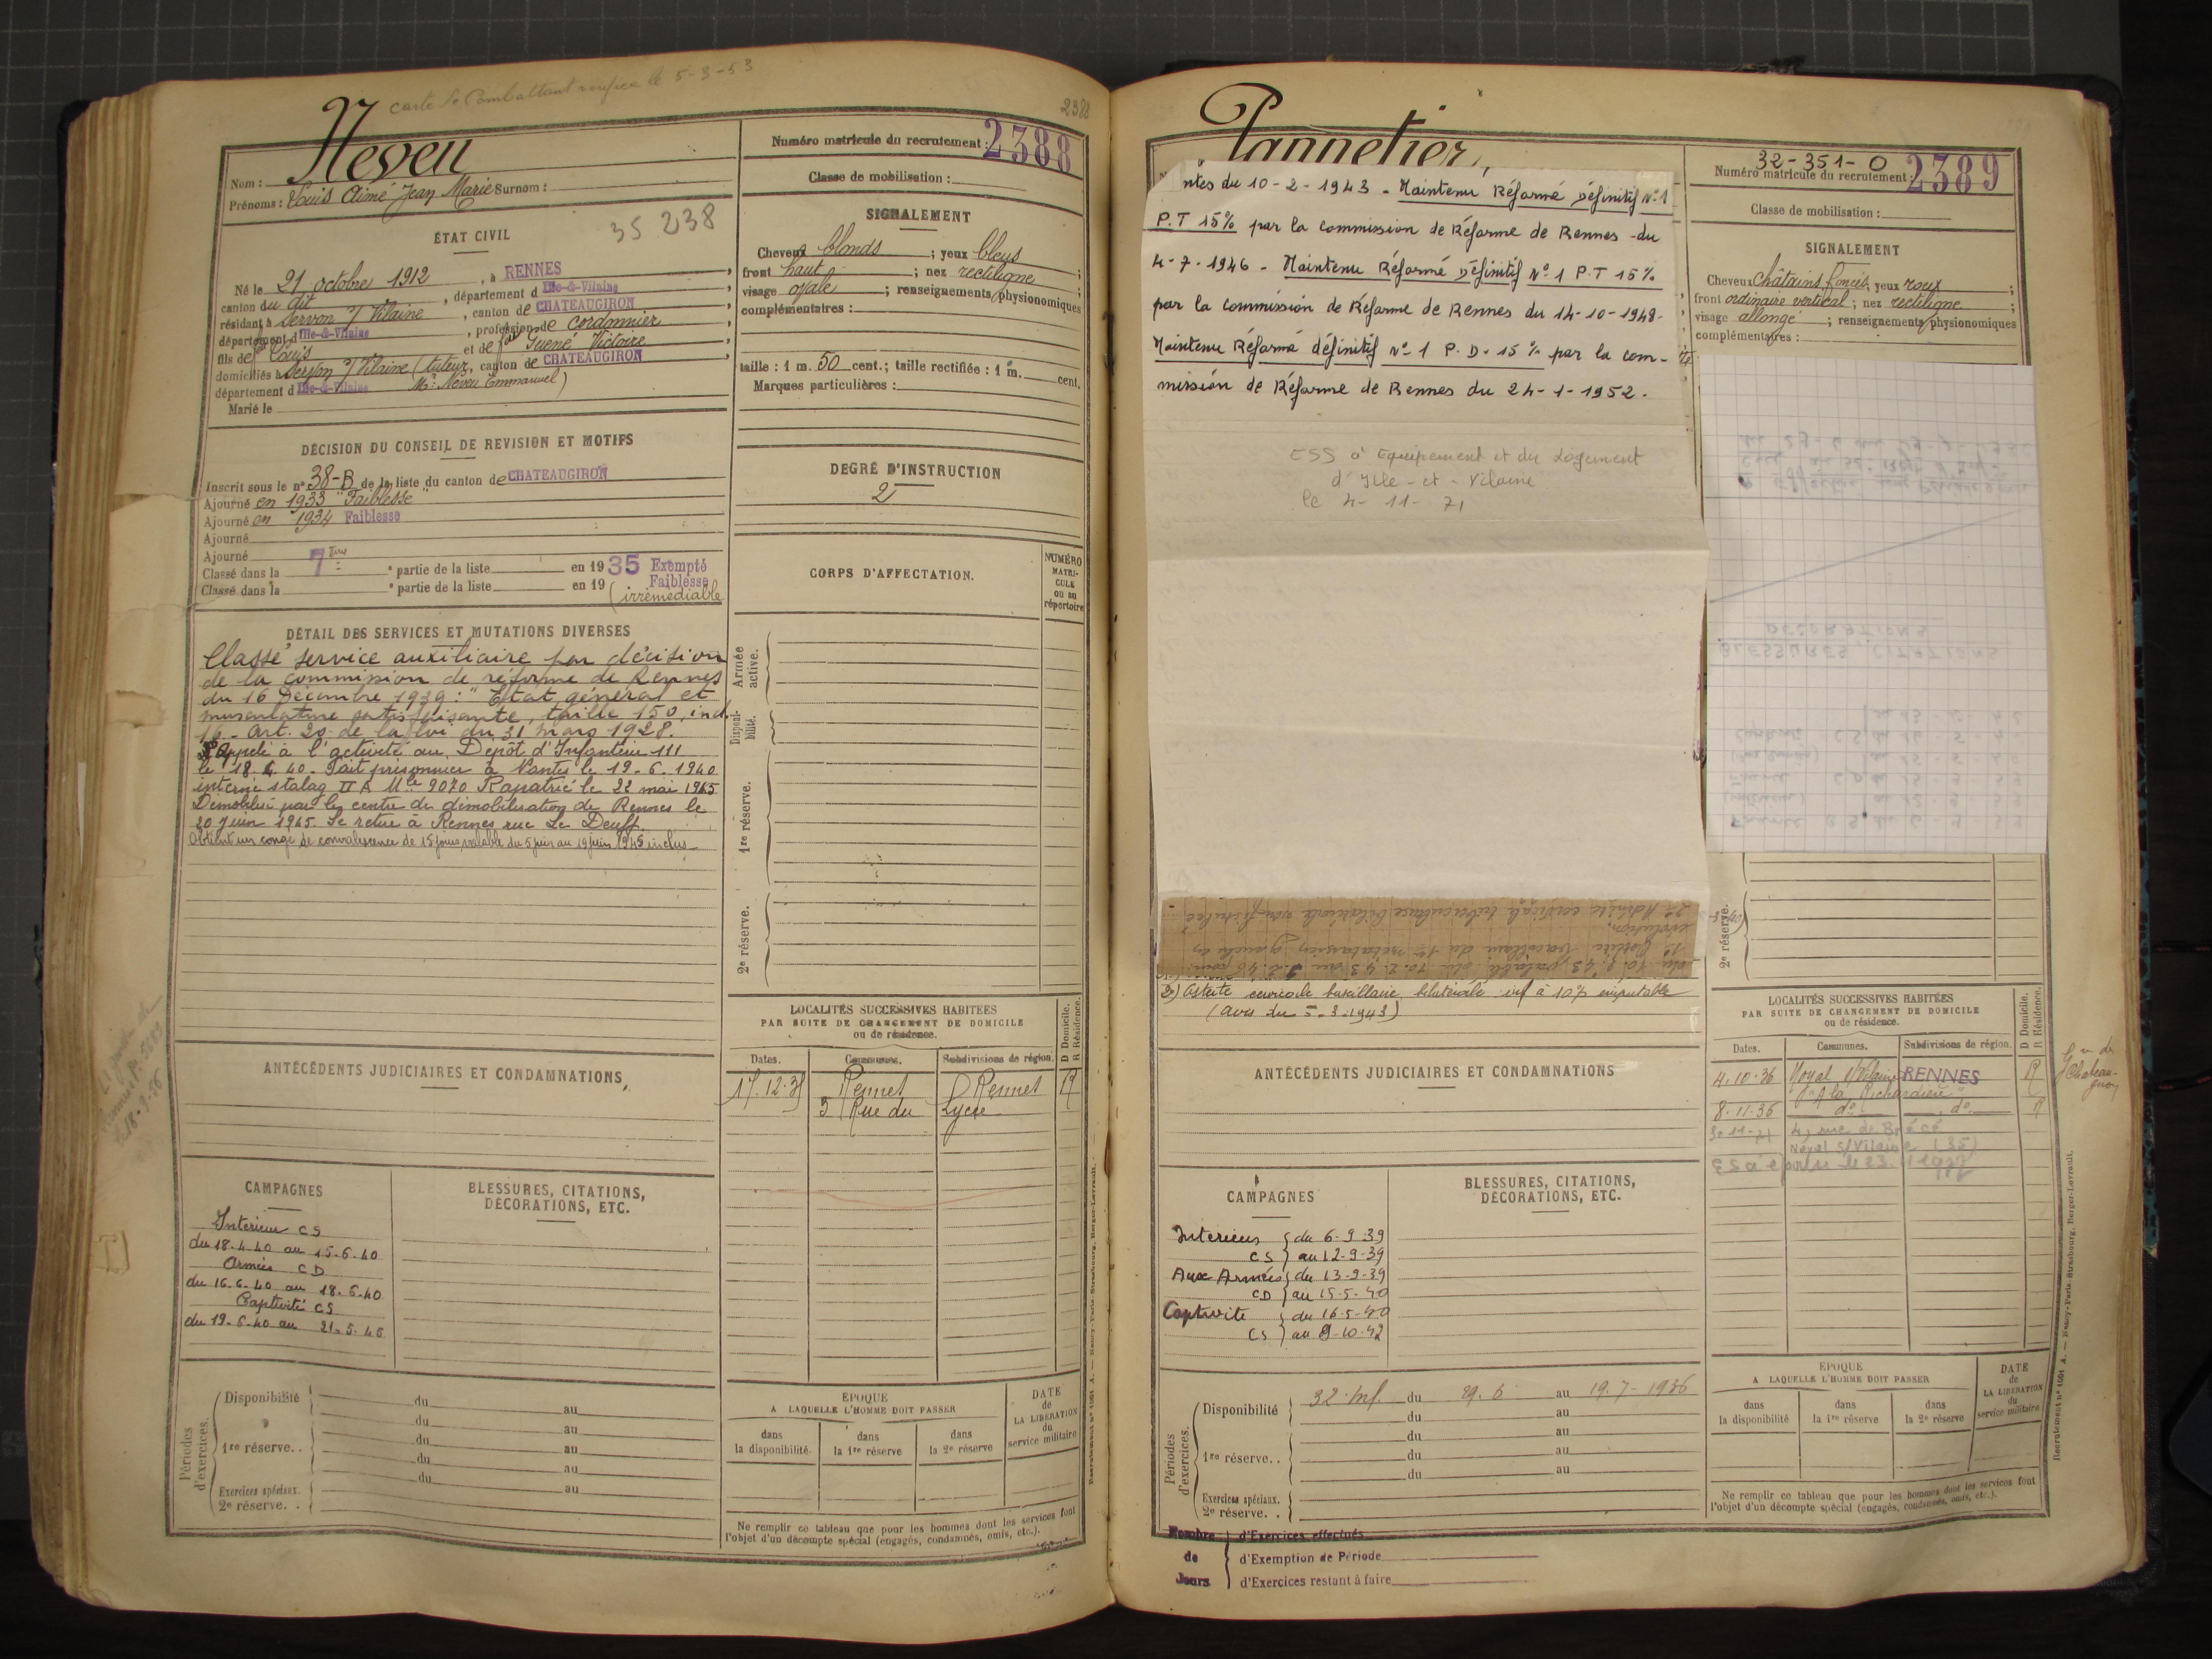 carte de Combattant vérifiée le 5-3-53
2388
Neveu
Nom :
Prénoms : Louis Aimé Jean Marie Surnom :
35 238
ÉTAT CIVIL
Né le 21 octobre 1912, à RENNES,
canton du dit, département d Ille-&-Vilaine,
résidant à Servon s/ Vilaine, canton de CHATEAUGIRON,
département d Ille-&-Vilaine, profession de cordonnier,
fils de feu Louis et de feue Guené Victoire,
domiciliés à Servon s/ Vilaine (tuteur, canton de CHATEAUGIRON,
département d Ille-&-Vilaine Mr. Neveu Emmanuel)
Marié le
DÉCISION DU CONSEIL DE REVISION ET MOTIFS
Inscrit sous le n° 38-B de la liste du canton de CHATEAUGIRON
Ajourné en 1933 "Faiblesse"
Ajourné en 1934 Faiblesse
Ajourné
Ajourné
Classé dans la 7ème ° partie de la liste en 1935 Exempté
Classé dans la ° partie de la liste en 19 Faiblesse
(irrémédiable
DÉTAIL DES SERVICES ET MUTATIONS DIVERSES
Classé service auxiliaire par décision
de la commission de réforme de Rennes
du 16 Décembre 1939 : "Etat général et
musculature satisfaisante, taille 150, ind.
16 - Art. 20 de la loi du 31 mars 1928.
Rappelé à l'activité au Dépôt d'Infanterie 111
le 18. 4. 40. Fait prisonnier à Nantes le 19-6.1940
interné stalag II A Mle 9070 Rapatrié le 22 mai 1945
Démobilisé par le centre de démobilisation de Rennes le
20 juin 1945. Se retire à Rennes rue Le Deuff.
Obtient un congé de convalescence de 15 jours valable du 5 juin au 19 juin 1945 inclus
ANTÉCÉDENTS JUDICIAIRES ET CONDAMNATIONS
CAMPAGNES
Intérieur CS
du 18.4.40 au 15.6.40
Armées CD
du 16.6.40 au 18.6.40
Captivité CS
du 19.6.40 au 21.5.45
BLESSURES, CITATIONS,
DÉCORATIONS, ETC.
Périodes d'exercices.
Disponibilité du au
du au
1re réserve. . du au
du au
du au
Exercices spéciaux.
2e réserve. .
Numéro matricule du recrutement : 2388
Classe de mobilisation :
SIGNALEMENT
Cheveux blonds ; yeux bleus ;
front haut ; nez rectiligne ;
visage ovale ; renseignements physionomiques
complémentaires :
taille : 1 m. 50 cent.; taille rectifiée : 1 m. cent.
Marques particulières :
DEGRÉ D'INSTRUCTION
2
CORPS D'AFFECTATION.
NUMÉRO
MATRI-
CULE
ou au
répertoire
Armée active.
Disponi-bilité.
1re réserve.
2e réserve.
LOCALITÉS SUCCESSIVES HABITÉES
PAR SUITE DE CHANGEMENT DE DOMICILE
ou de résidence.
D Domicile.
R Résidence.
Dates. Communes. Subdivisions de région.
Rennes Rennes R
Rue du Lycée
ÉPOQUE
A LAQUELLE L'HOMME DOIT PASSER
dans la disponibilité. dans la 1re réserve dans la 2e réserve
DATE
de
LA LIBÉRATION
du
service militaire
Ne remplir ce tableau que pour les hommes dont les services font
l'objet d'un décompte spécial (engagés, condamnés, omis, etc.).
Recrutement N° 1001 A. — Nancy-Paris-Strasbourg, Berger-Levrault.
Pannetier,
ntes du 10-2-1943 - Maintenu Réformé Définitif N°1
P.T 15% par la commission de Réforme de Rennes du
4-7-1946 - Maintenu Réformé Définitif N° 1 P.T 15%
par la Commission de Réforme de Rennes du 14-10-1948-
Maintenu Réformé définitif N° 1 P.D. 15% par la com-
mission de Réforme de Rennes du 24-1-1952.
ESS à Equipement et du Logement
d'Ille-et-Vilaine
le 4-11-71
(avis du 5-3-1943)
ANTÉCÉDENTS JUDICIAIRES ET CONDAMNATIONS
CAMPAGNES
Intérieur du 6-9-39
CS au 12-9-39
Aux Armées du 13-9-39
CD au 15-5-40
Captivité du 16-5-40
CS au 9-10-42
BLESSURES, CITATIONS,
DÉCORATIONS, ETC.
Périodes d'exercices.
Disponibilité 32e Inf. du 29.6 au 19.7-1936
du au
1re réserve. . du au
du au
du au
Exercices spéciaux.
2e réserve. .
Nombre de Jours
d'Exercices effectués
d'Exemption de Période
d'Exercices restant à faire
32-351-0
Numéro matricule du recrutement : 2389
Classe de mobilisation :
SIGNALEMENT
Cheveux châtains foncés; yeux roux ;
front ordinaire vertical ; nez rectiligne ;
visage allongé ; renseignements physionomiques
complémentaires :
BLESSURES, CITATIONS
DÉCORATIONS
2e réserve.
LOCALITÉS SUCCESSIVES HABITÉES
PAR SUITE DE CHANGEMENT DE DOMICILE
ou de résidence.
D Domicile.
R Résidence.
Dates. Communes. Subdivisions de région.
4.10.36 Noyal s/Vilaine RENNES R
"A la Richardière"
8.11.36 do do R
4, rue de Brécé
Noyal s/Vilaine (35)
ÉPOQUE
A LAQUELLE L'HOMME DOIT PASSER
dans la disponibilité dans la 1re réserve dans la 2e réserve
DATE
de
LA LIBÉRATION
du
service militaire
Ne remplir ce tableau que pour les hommes dont les services font
l'objet d'un décompte spécial (engagés, condamnés, omis, etc.).
Recrutement N° 1001 A. — Nancy-Paris-Strasbourg, Berger-Levrault.